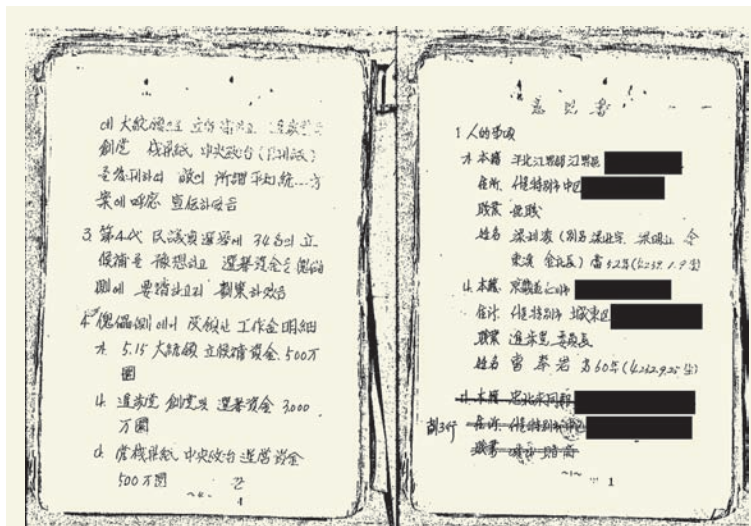 에 大統領으로 立候補하고
創党 機関紙 中央政治 (月刊紙)
를 發刊하여 敵의 所謂 平和統
案에 呼應 宣伝하였음
3. 第4代 民議員選挙에 34名의 立
候補를 豫想하고 選挙資金을 傀儡
側에 要請하고 劃策하였음
4. 傀儡側에서 反領한 工作金明細
ㄱ. 5.15 大統領 立候補資金 500万
圜
ㄴ. 進歩党 創党 및 選挙資金 3,000
万圜
ㄷ. 党機関紙 中央政治 運営資金
500万圜
4
意見書
1. 人的事項
ㄱ. 本籍 平北江界郡江界邑
住所 서울特別市中区
職業 無職
姓名 梁利渉 (別名 梁 梁明山 金
東浩 金) 当52年 (4239.1.9生)
ㄴ. 本籍 京畿道仁川市
住所 서울特別市 城東区
職業 進歩党委員長
姓名 曺奉岩 当60年 (4232.9.25生)
本籍
削3行 住所 서울特別市中区
職業
~1~ 1